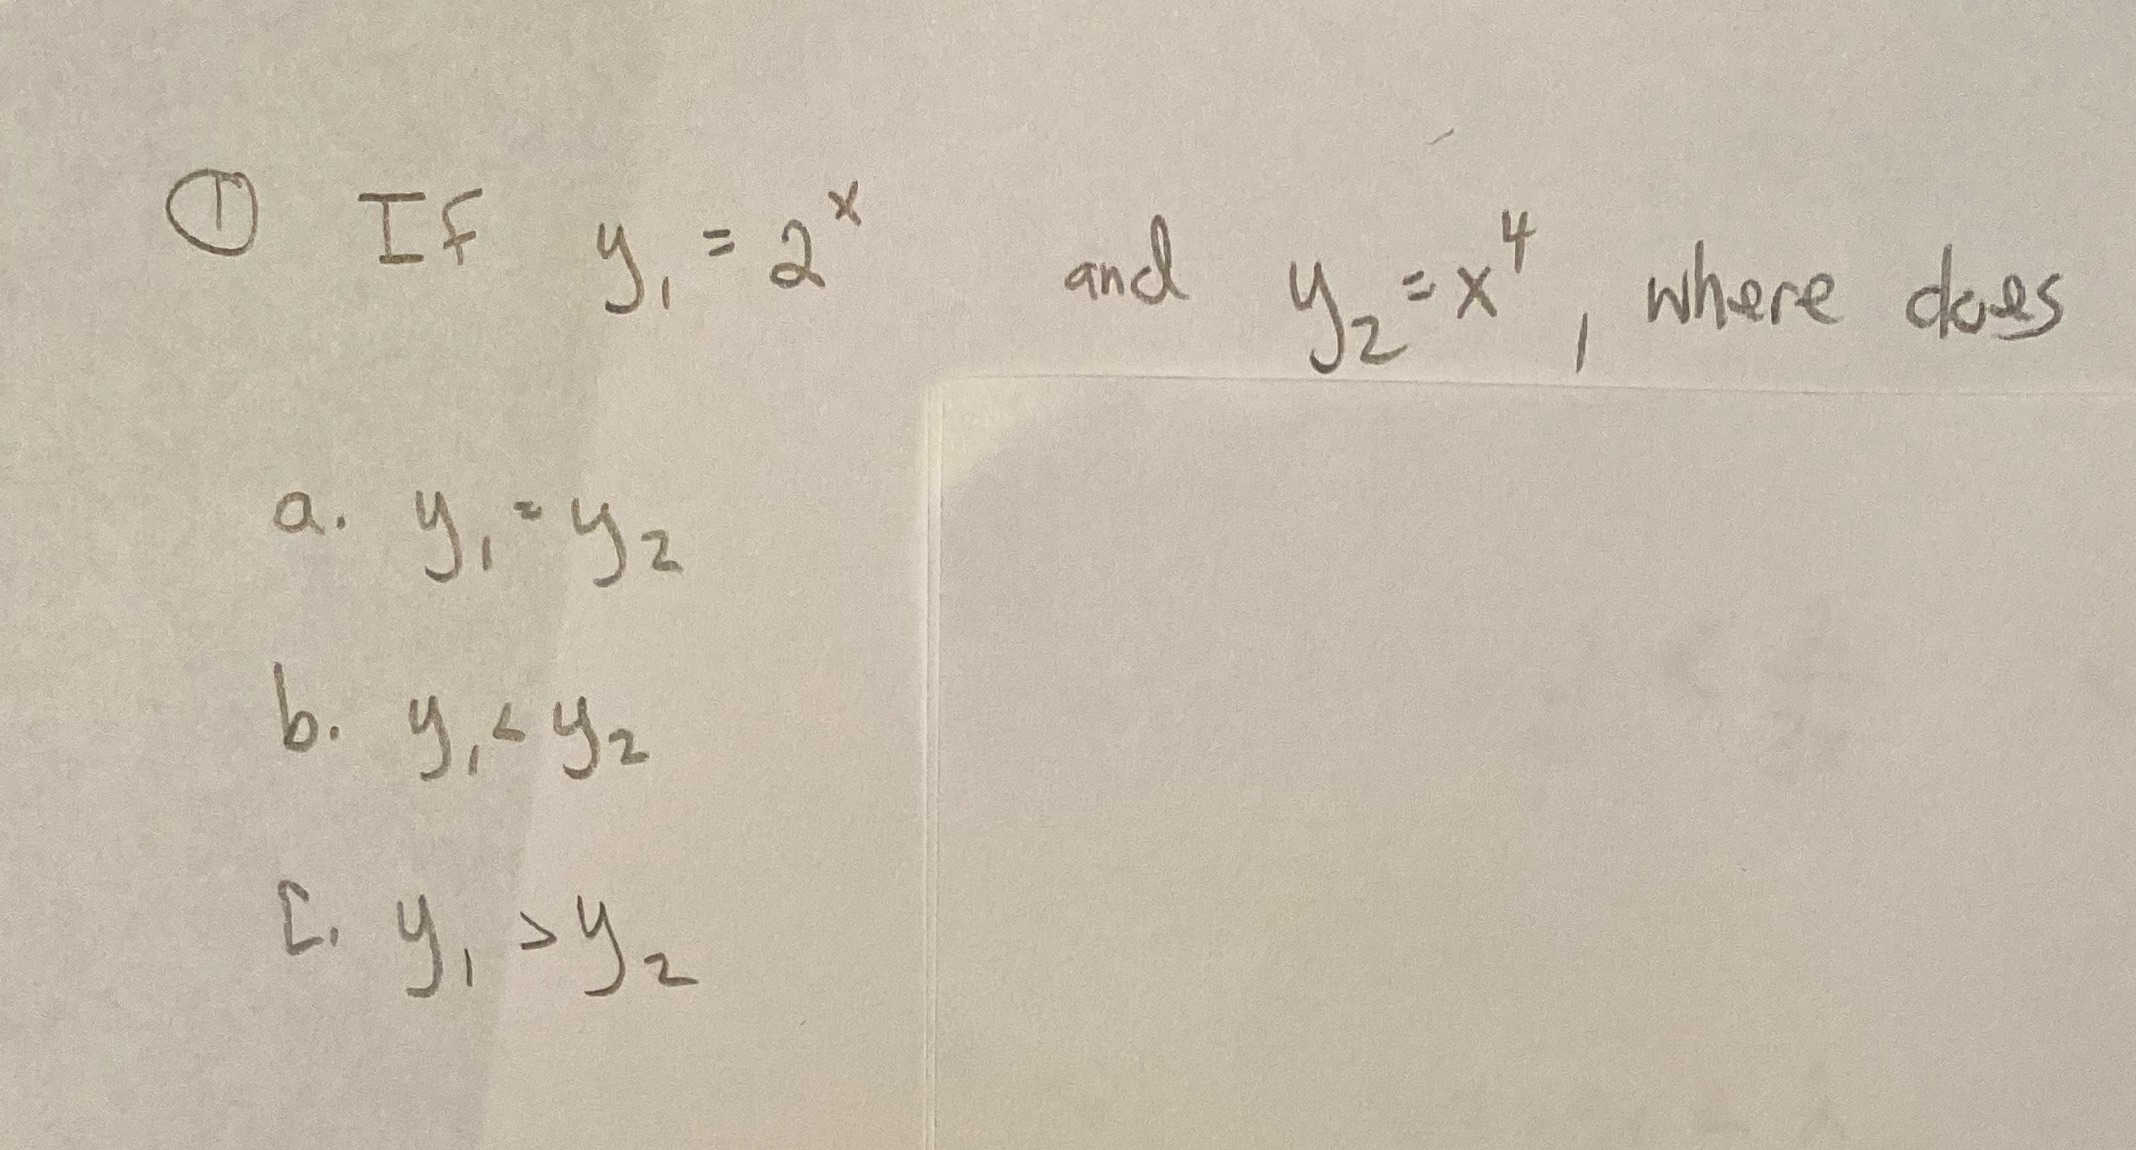 ① If y₁ = 2ˣ and y₂ = x⁴, where does
a. y₁ = y₂
b. y₁ < y₂
c. y₁ > y₂